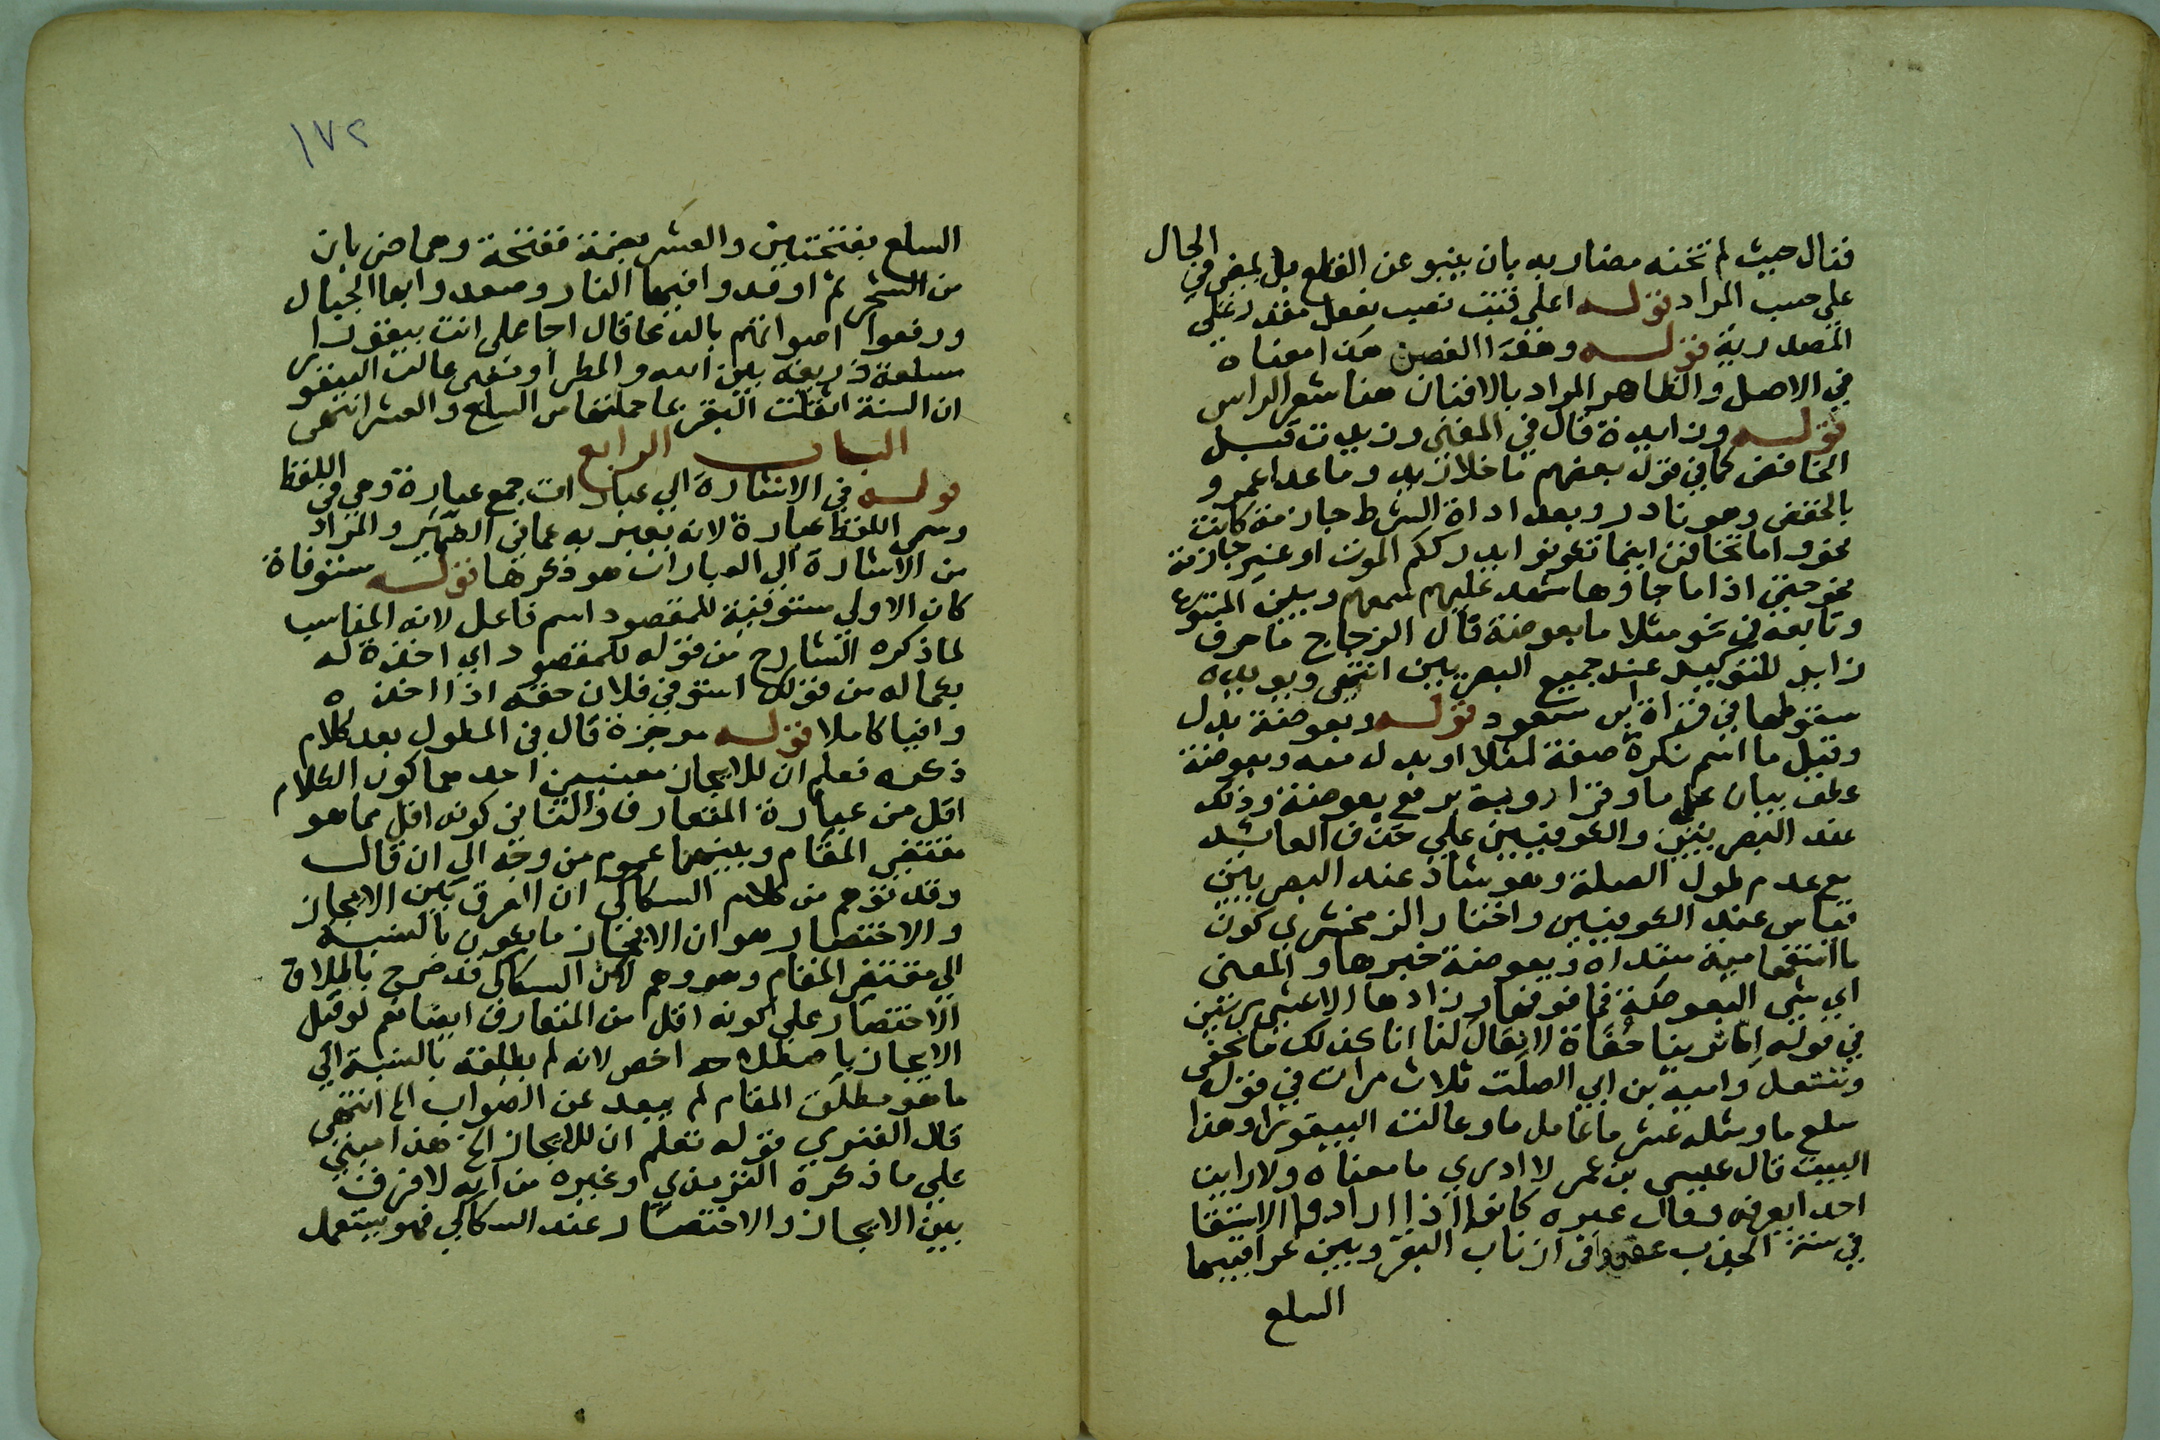 فتال حيث لم تخنه مضاربه بان ينبو عن القطع بل يمضي في الحال
على حسب المراد قوله اعلي فتنت نصب بفعل مقدر على
المصدرية قوله وهذا الغصن هذا معناه
في الاصل والظاهر المراد بالافنان هنا شعر الراس
قوله وزايدة قال في المغني وزيدت قبل
الخافض كما في قول بعضهم ما خلا زيد وما عدا عمرو
بالخفض وهو نادر وبعد اداة الشرط جازمة كانت
نحو واما تخافن اينما تكونوا يدرككم الموت او غير جازمة
نحو حتى اذا ما جاؤها شهد عليهم سمعهم وبين المتبوع
وتابعه في نحو مثلا ما بعوضة قال الزجاج ما حرف
زايد للتوكيد عند جميع البصريين انتهى ويويده
سقوطها في قراة ابن مسعود قوله وبعوضة بدل
وقيل ما اسم نكرة صفة لمثلا او بدل منه وبعوضة
عطف بيان على ما وقرا روبة برفع بعوضة وذلك
عند البصريين والكوفيين علي حذف العائد
مع عدم طول الصلة وهو شاذ عند البصريين
قياس عند الكوفيين واختار الزمخشري كون
ما استفهامية مبتداة وبعوضة خبرها والمعنى
اي شي البعوضة فما فوقها وزادها الاعشى مرتين
في قوله اما ترينا حُفَاة لا نعال لنا انا كذلك ما نحفى
وننتعل وامية بن ابي الصلت ثلاث مرات في قوله
سلع ما ومثله عشر ما عامل ما وعالت البيقورا وهذا
البيت قال عيسى بن عمر لا ادري ما معناه ولا رايت
احدا يعرفه وقال غيره كانوا اذا ارادوا الاستسقا
في سنة الجدب عقدوا في اذناب البقر وبين عراقيبها
السلع
١٧٢
السلع بفتحتين والعشر بضمة ففتحة وهما ضربان
من الشجر ثم اوقدوا فيها النار وصعدوا بها الجبال
ورفعوا اصواتهم بالدعا قال اجاعل انت بيقورا
مسلعة ذريعة بين الله والمطر او معنى عالت البيقورا
ان السنة اثقلت البقر بما حملتها من السلع والعشر انتهى
الباب الرابع
قوله في الاشارة الي عبارات جمع عبارة وهي في اللفظ
وسمي اللفظ عبارة لانه يعبر به عما في الضمير والمراد
من الاشارة الي العبارات هو ذكرها قوله مستوفاة
كان الاولي مستوفية للمقصود اسم فاعل لانه المناسب
لما ذكره الشارح من قوله للمقصود اي اخذة له
بكماله من قولك استوفي فلان حقه اذا اخذه
وافيا كاملا قوله موجزة قال في المطول بعد كلام
ذكره فعلم ان للايجاز معنيين احدهما كون الكلام
اقل من عبارة المتعارف والثاني كونه اقل مما هو
مقتضى المقام وبينهما عموم من وجه الي ان قال
وقد توهم من كلام السكاكي ان الفرق بين الايجاز
والاختصار هو ان الايجاز ما يكون بالنسبة
الي مقتضى المقام وهو وهم لان السكاكي قد صرح باطلاق
الاختصار علي كونه اقل من المتعارف ايضا نعم لو قيل
الايجاز باصطلاحه اخص لانه لم يطلقه بالنسبة الي
ما هو مطلق المقام لم يبعد عن الصواب الخ انتهى
قال الفنري قوله فعلم ان للايجاز الخ هذا مبني
علي ما ذكره الترمذي وغيره من انه لا فرق
بين الايجاز والاختصار عند السكاكي فهو يستعمل